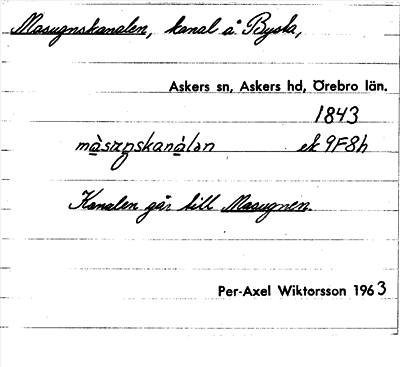 Masugnskanalen, kanal å Byska,
Askers sn, Askers hd, Örebro län.
1843
ek 9F8h
Kanalen går till Masugnen.
Per-Axel Wiktorsson 1963